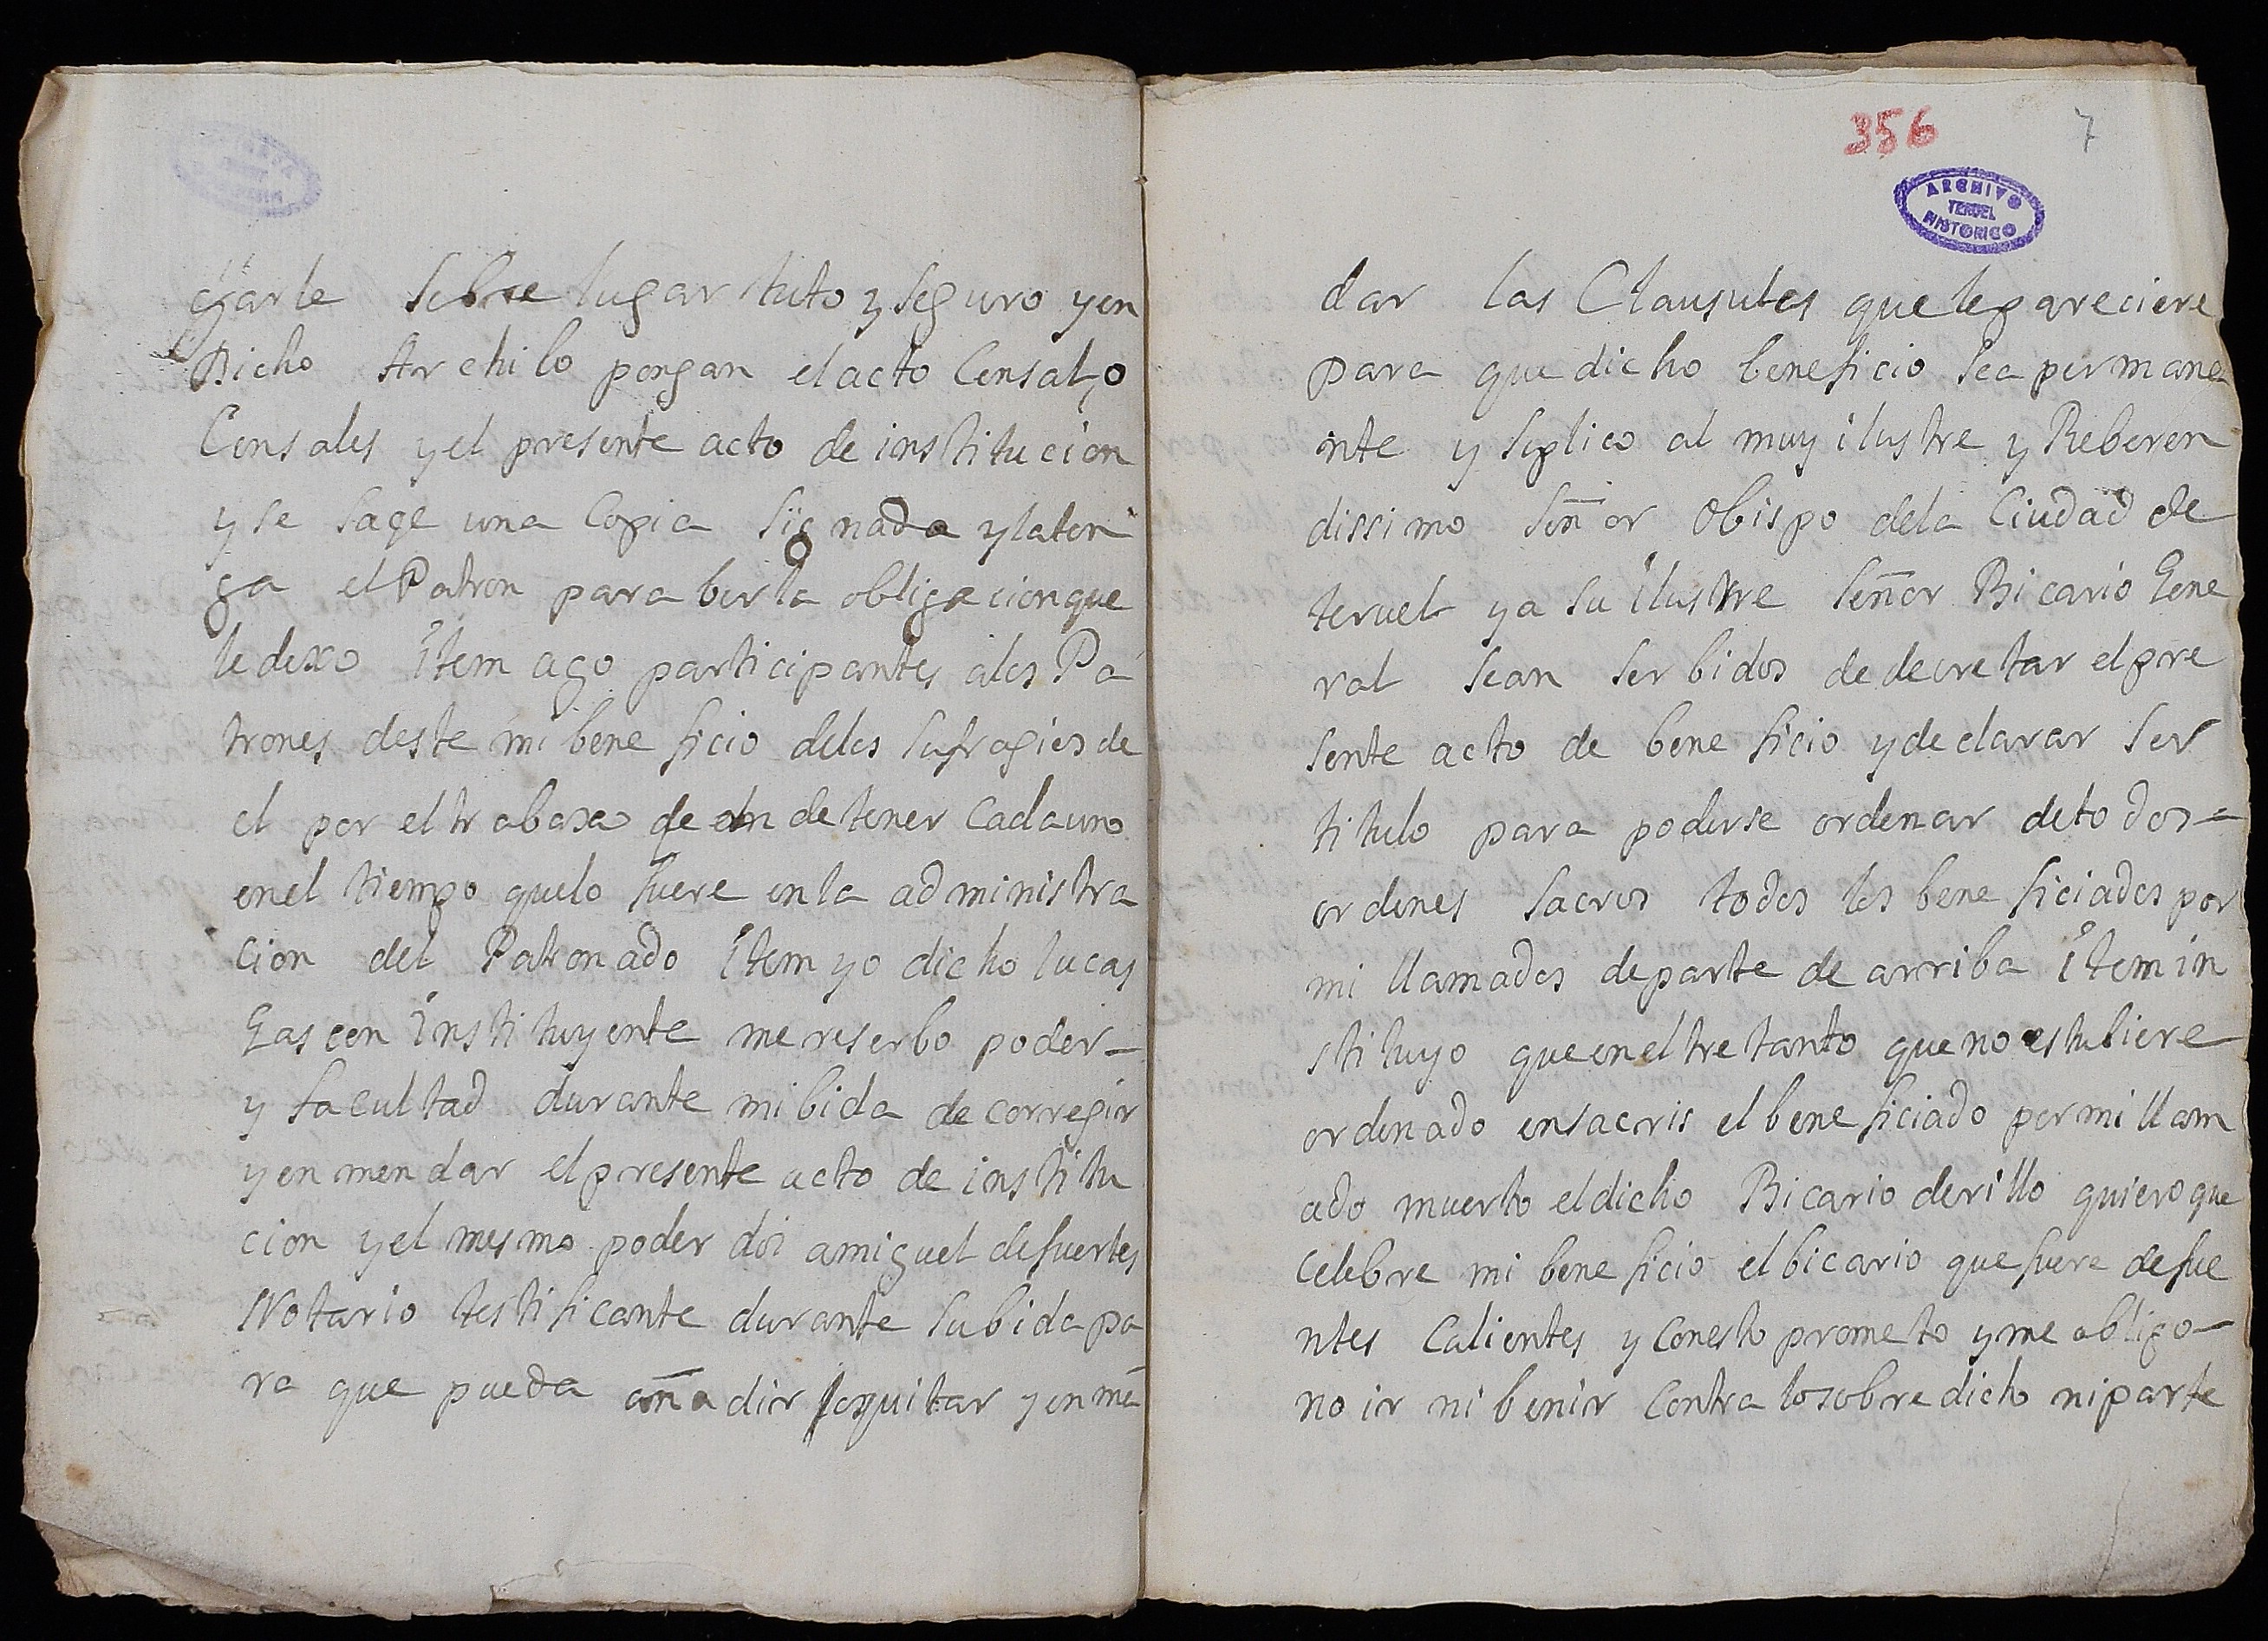 garle sobre lugar tuto y seguro y en
Dicho Archibo pongan el acto Censal, o
Censales y el presente acto de institucion
y se saqe una Copia signada y la ten
ga el Patron para ber la obligacion que
le dexo item ago participantes a los Pa
trones deste mi bene ficio de los sufragios de
el por el trabaxo qe an de tener Cada uno
en el tiempo que lo fuere en la administra
cion del Patronado item yo dicho lucas
Gascon instituyente me reserbo poder
y facultad durante mi bida de corregir
y enmendar el presente acto de institu
cion y el mesmo poder doi a miguel de fuertes
Notario testificante durante su bida pa
ra que pueda añadir o quitar y en mē
356 7
ARCHIVO
TERUEL
HISTORICO
dar las Clausulas que le pareciere
para que dicho beneficio sea permane
nte y suplico al muy ilustre y Reberen
dissimo Señor Obispo de la Ciudad de
teruel y a su ilustre Señor Bicario Gene
ral sean serbidos de decretar el pre
sente acto de bene ficio y declarar ser
titulo para poderse ordenar de todos
ordenes sacros todos los bene ficiados por
mi llamados de parte de arriba item in
stituyo que en el tre tanto que no estubiere
ordenado en sacris el bene ficiado por mi llam
ado muerto el dicho Bicario de rillo quiero que
Celebre mi bene ficio el bicario que fuere de fue
ntes Calientes y Con esto prometo y me obligo
no ir ni benir Contra lo sobre dicho ni parte